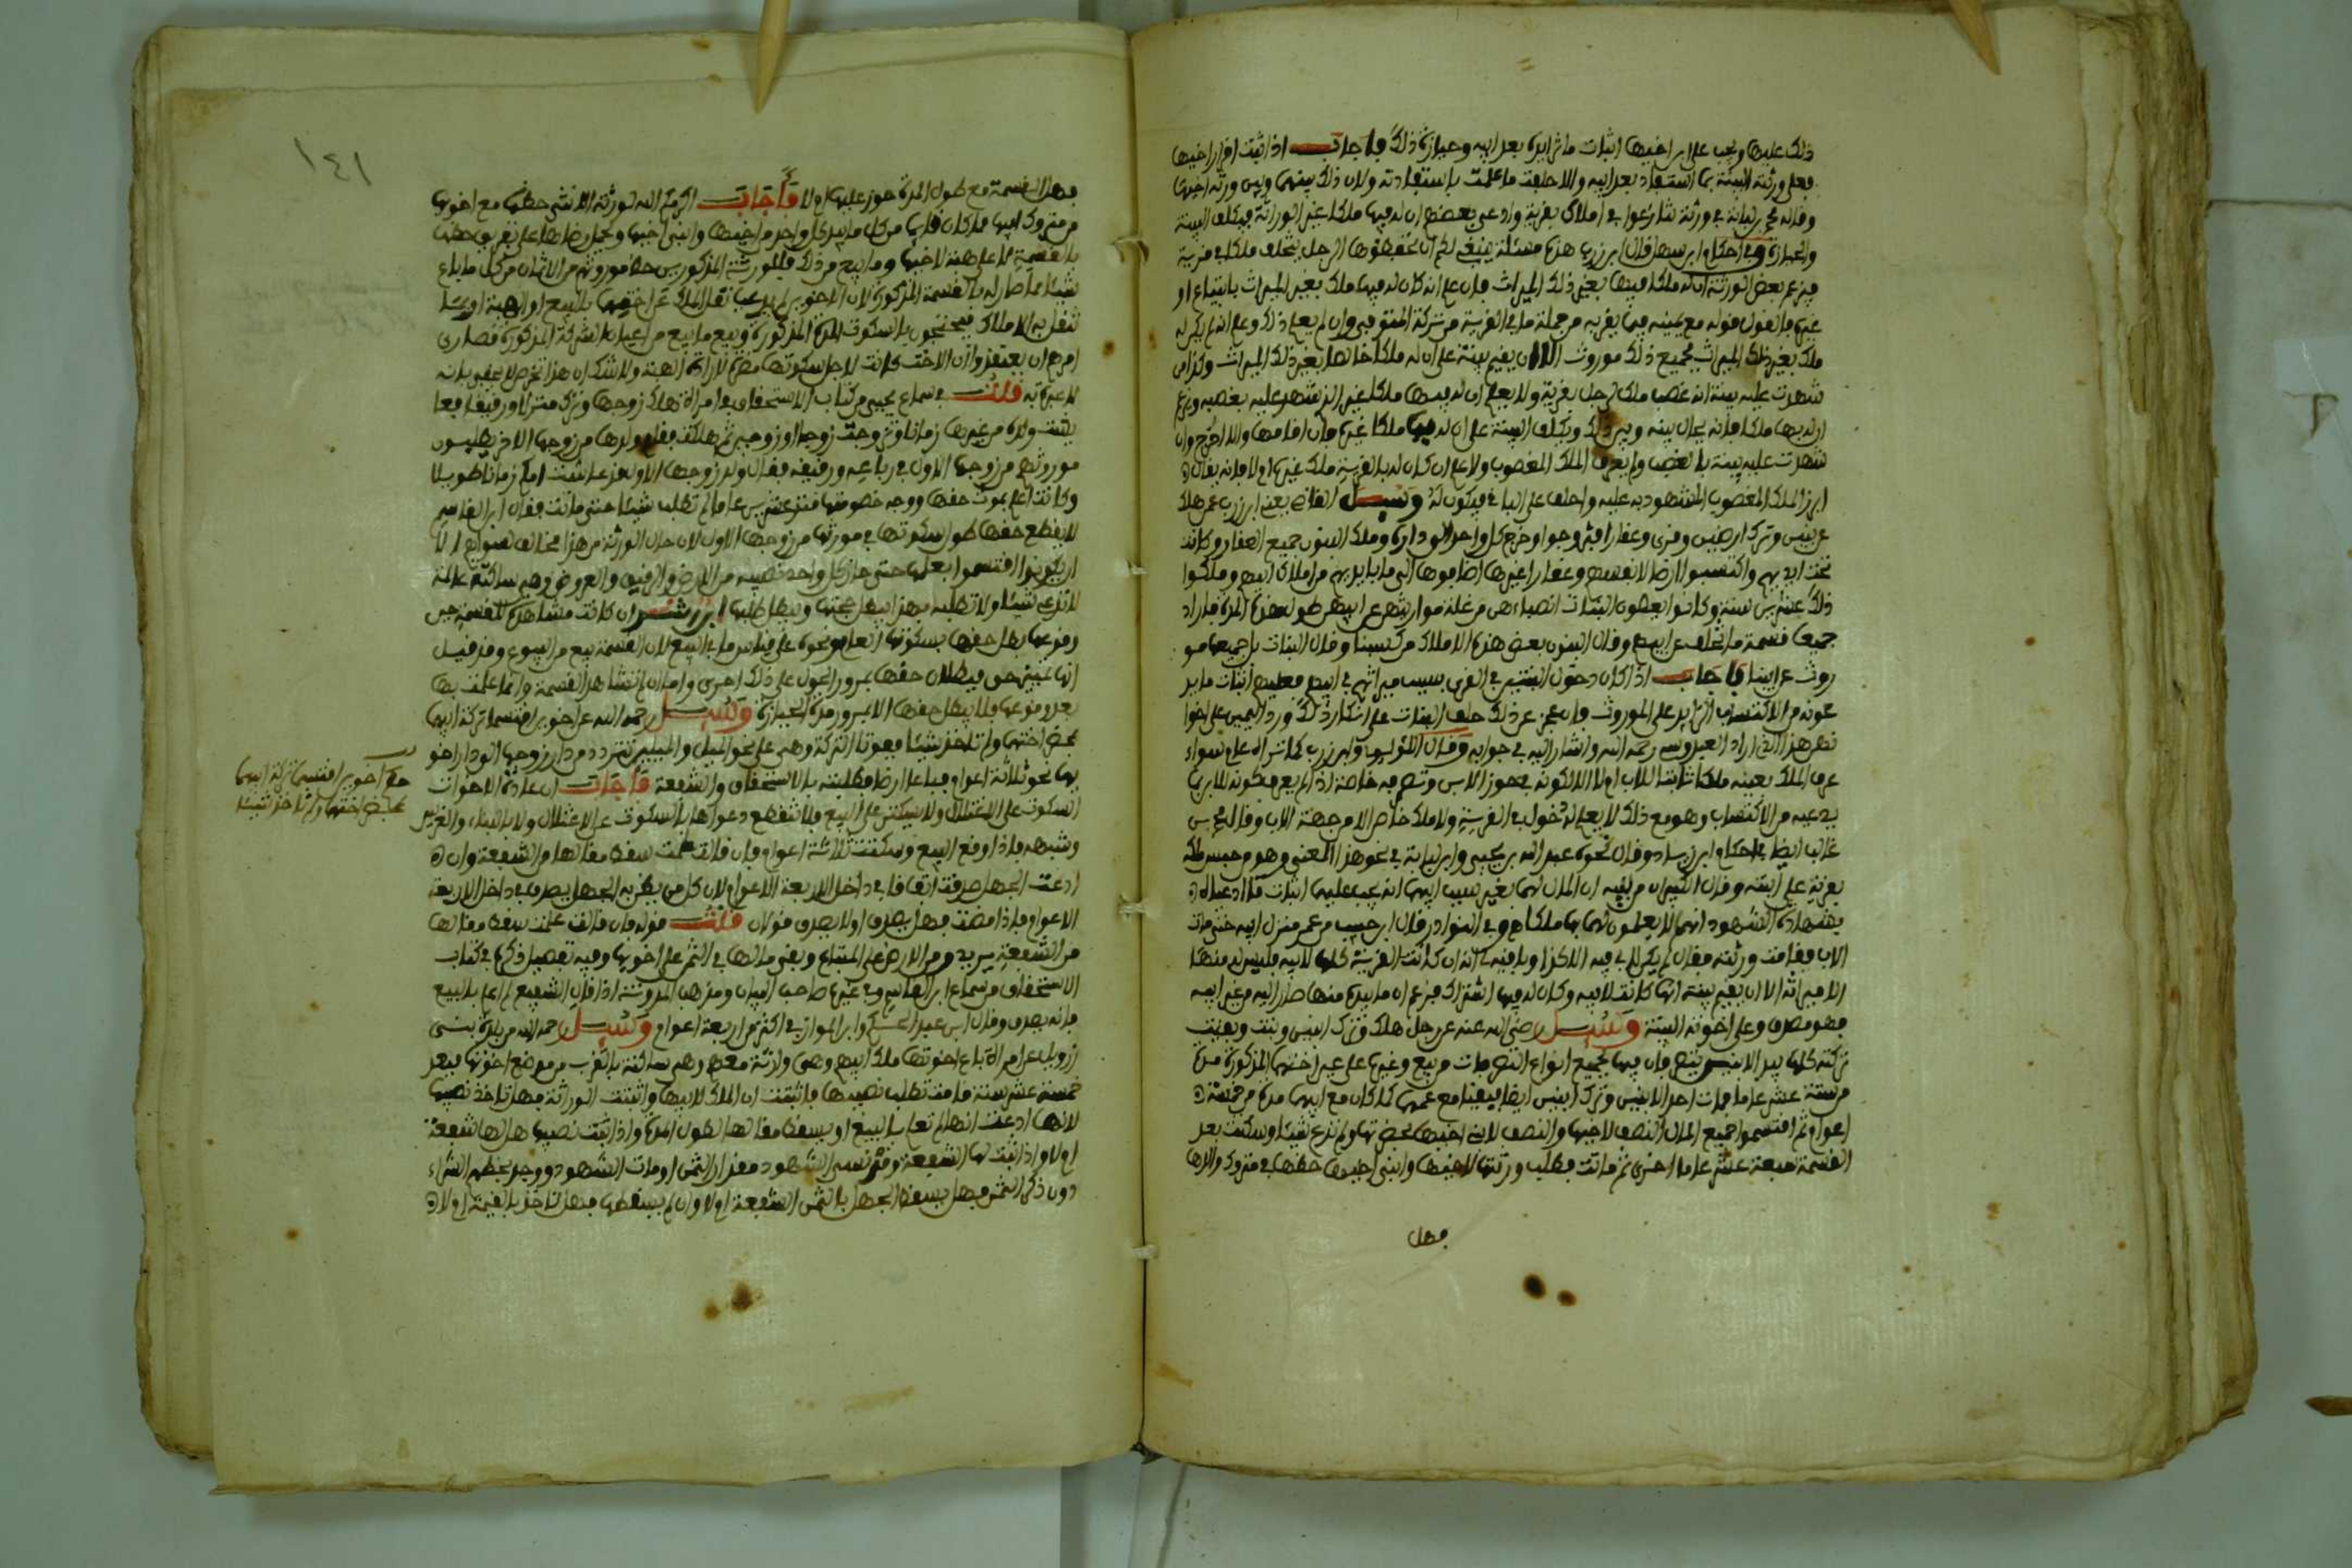 ذلك عليها ويجب على ابن اخيها اثبات ما بيده بعد ابيه وحيازة ذلك فاجاب اذا ثبت اقرار اخيها
فعلى ورثته البينة بما استفاد بعد ابيه والا حلفت ما علمت باستفادته ولان ذلك بينهما وبين ورثة اخيها
وقاله ابن لبابة في ورثة تنازعوا في املاك بقرية وادعى بعضهم ان له فيها ملكا بغير الوراثة فيكلف البينة
والحيازة وفي احكام ابن سهل قال ابن زرب هذه مسئلة ينبغي لكم ان تحفظوها الرجل يتخلف ملكا في قرية
فيزعم بعض الورثة ان له ملكا فيها بغير ذلك الميراث فان علم انه كان له فيها ملك بغير الميراث بابتياع او
غيره فالقول قوله مع يمينه فيما يقر به من جملة ما في القرية من تركة المتوفى وان لم يعلم ذلك وعلم انه لم يكن له
ملك بغير ذلك الميراث فجميع ذلك موروث الا ان يقيم بينة على ان له ملكا خالصا بغير ذلك الميراث وكذا من
شهدت عليه بينة انه غصب ملك رجل بقرية ولا يعلم ان له فيها ملكا غير الذي شهد عليه بغصبه ويزعم
ان له بها ملكا فانه يحال بينه وبين ذلك ويكلف البينة على ان له فيها ملكا غيره فان اقامها والا اخرج وان
شهدت عليه بينة بالغصب ولم يعرف الملك المغصوب ولا علم ان كان له بالقرية ملك غيره ام لا فانه يقال له
ابرز الملك المغصوب المشهود به عليه واحلف على الباقي فيكون له وسئل القاضي يعني ابن زرب عمن هلك
عن بنين وترك ارضين وقرى وعقارا فتزوجوا وخرج كل واحد الى داره وملك البنون جميع العقار وكانت
تحت ايديهم واكتسبوا ارضا لانفسهم وعقارا غيرها اضافوها الى ما بايديهم من املاك ابيهم وملكوا
ذلك عشرين سنة وكانوا يعطون البنات انصباءهن من غلة مواريثهم عن ابيهم طول هذه المدة فاراد
جميعا قسمة ما تخلف عن ابيهم وقال البنون بعض هذه الاملاك من كسبنا وقال البنات بل جميعها مو
روث عن ابينا فاجاب اذا كان دخول البنين في القرى بسبب ميراثهم في ابيهم فعليهم اثبات ما يد
عونه من الاكتساب الزائد على الموروث فان عجز عن ذلك حلف البنات على انكار ذلك ورد اليمين على اخوا
تهم هذا الذي اراد العبدوسي رحمه الله واشار اليه في جوابه وقال المؤلف وابن زرب كما تراه علم سواء
عرف الملك بعينه ملكا ثابتا للاب ام لا
يدعيه من الاكتساب وهو مع ذلك لا يعلم له دخول في القرية ولا ملك خاص الا من جهة الاب وقال محمد بن
غالب ايضا في احكام ابن زياد وقال نحوه عبيد الله بن يحيى وابن لبابة في نحو هذا المعنى وهو من حبس ملكه
بقرية على ابنته وقال اللتان من بنيه ان المال لهما بغير سبب ابيهما انه يجب عليهما اثبات ما ادعياه
بشهادة الشهود انهم لا يعلمون لهما بها ملكا وفي النوادر قال ابن حبيب من عمر منزل ابيه حتى مات
الاب فقامت ورثته فقال لم يكن لابي فيه الا كذا وباقيه لي انه ان كانت القرية كلها لابيه فليس له منها
الا ميراثه الا ان يقيم بينة انها كانت لابيه وكان له فيها اشتراك فزعم ان ما بيده منها صار اليه من غير ابيه
فهو مصدق وعلى اخوته البينة وسئل رضي الله عنه عن رجل هلك وترك ابنين وبنت وبقيت
تركته كلها بيد الابنين بينهم فان فيها بجميع انواع التصرفات من بيع وغيره على عين اختهما المذكورة مدة
من ستة عشر عاما فمات احد الابنين وترك ابنين ايضا فبقيا مع عمهما كما كان مع ابيهما مدة من خمسة
اعوام ثم اقتسموا جميع المال النصف لاخيها والنصف لابني اخيها بمحضرتها ولم تدع شيئا وسكتت بعد
القسمة سبعة عشر عاما اخرى ثم ماتت فطلب ورثتها لاخيها وابني اخيها حظها في متروك والدها
فهل
١٤١
فهل القسمة مع طول المدة حوز عليها ام لا فاجاب اكرمكم الله لورثة الانثى حظها مع اخوتها
من متروك ابيها مما كان قائما من كل ما بيد كل واحد من اخيها وابني اخيها ويحمل رضاها على تعريف حظها
بالقسمة لا على هبته لاخيها وما بيع من ذلك فللورثة المذكورين حظ موروثهم من الاثمان من كل ما باع
شيئا مما صار له بالقسمة المذكورة لان الاخوين لم يدعيا نقل الملك عن اختهما بالبيع او الهبة او بما
تنقل به الاملاك فيحتجون بالسكوت المدة المذكورة وبيع ما بيع من اعيان التركة المذكورة فصارى
امرهم ان يعتقدوا ان الاخت كانت لاجل سكوتها هذه المدة الهبة ولا شك ان هذا تخرص لا يخفى بانه
لا عبرة به قلت في سماع يحيى من كتاب الاستحقاق في امراة هلك زوجها وترك منزلا ورقيقا فيها
بقيت وولده من غيرها زمانا وتزوجت زوجا او زوجين ثم هلكت فقام ولدها من زوجها الآخر يطلبون
موروثهم من زوجها الاول في رباعه ورقيقه فقال ولد زوجها الاول قد عاشت امكم زمانا طويلا
وكانت اعلم بموت حقها ووجه خصومتها منذ عشرين عاما لم تطلب شيئا حتى ماتت فقال ابن القاسم
لا يقطع حقها طول سكوتها في مورثها من زوجها الاول لان حال الورثة من هذا مخالف لغيرهم الا
ان يكونوا اقتسموا بعلمها حتى حاز كل واحد نصيبه من الارض والرقيق والعروض وهي ساكتة عالمة
لا تدعي شيئا ولا تطلبه فهذا يقطع حجتها ويبطل طلبها ابن رشد ان كانت مشاهدة للقسمة حين
وقوعها بطل حقها بسكوتها العام ونحوه على قياس ما في البيع لان القسمة بيع من البيوع وقد قيل
انها تمييز حق فبطلان حقها بمرور الحول على ذلك احرى واما ان لم تشاهد القسمة وانما علمت بها
بعد وقوعها فلا يبطل حقها الا بمرور مدة الحيازة وسئل رحمه الله عن اخوين اقتسما تركة ابيهما
بمحضر اختهما ولم تاخذ شيئا فقوتا التركة وهي على نحو الميل والميلين تتردد من دار زوجها الى دار اخو
يها نحو ثلاثة اعوام فباعا ارضا فطلبته بالاستحقاق والشفعة فاجاب ان عادة الاخوات
السكوت على الاغتلال ولا يسكتن على البيع فلا تنقطع دعواها بالسكوت عن الاغتلال ولا بالبناء والغرس
وشبهه فاذا وقع البيع وسكتت ثلاثة اعوام فان قالت علمت سقط مقالها من الشفعة وان
ادعت الجهل صدقت اتفاقا في داخل الاربعة الاعوام لان كل من يظن به الجهل يصدق في داخل الاربعة
الاعوام فاذا مضت فهل يصدق او لا يصدق قولان قلت قوله فان قالت علمت سقط مقالها
من الشفعة يريد ومن الارض على المبتاع وبقي مالها في الثمن على اخويها وفيه تفصيل ذكره في كتاب
الاستحقاق من سماع ابن القاسم وفي غيره صاحب البيان ومذهب المدونة اذا قال الشفيع لم اعلم بالبيع
فانه يصدق وقال ابن عبد الحكم وابن المواز في اكثر من اربعة اعوام وسئل رحمه الله من بلدة بني
زرويل عن امراة باع اخوتها ملك ابيهم وهي وارثة معهم وهي ساكنة بالقرب من موضع اخوتها فبعد
خمسة عشر سنة قامت تطلب نصيبها فاثبتت ان الملك لابيها واثبتت الوراثة فهل تاخذ نصيبها
لانها ادعت انها لم تعلم بالبيع او يسقط مقالها لطول المدة واذا ثبت نصيبها هل لها شفعة
ام لا واذا ثبت لها الشفعة وقد نسي الشهود مقدار الثمن او مات الشهود ووجد بخطهم الشراء
دون ذكر الثمن فهل يسقط الجهل بالثمن الشفعة ام لا وان لم يسقطها فهل تاخذ بالقيمة ام لا
حكم اخوين اقتسما تركة ابيهما
بمحضر اختهما ولم تاخذ شيئا